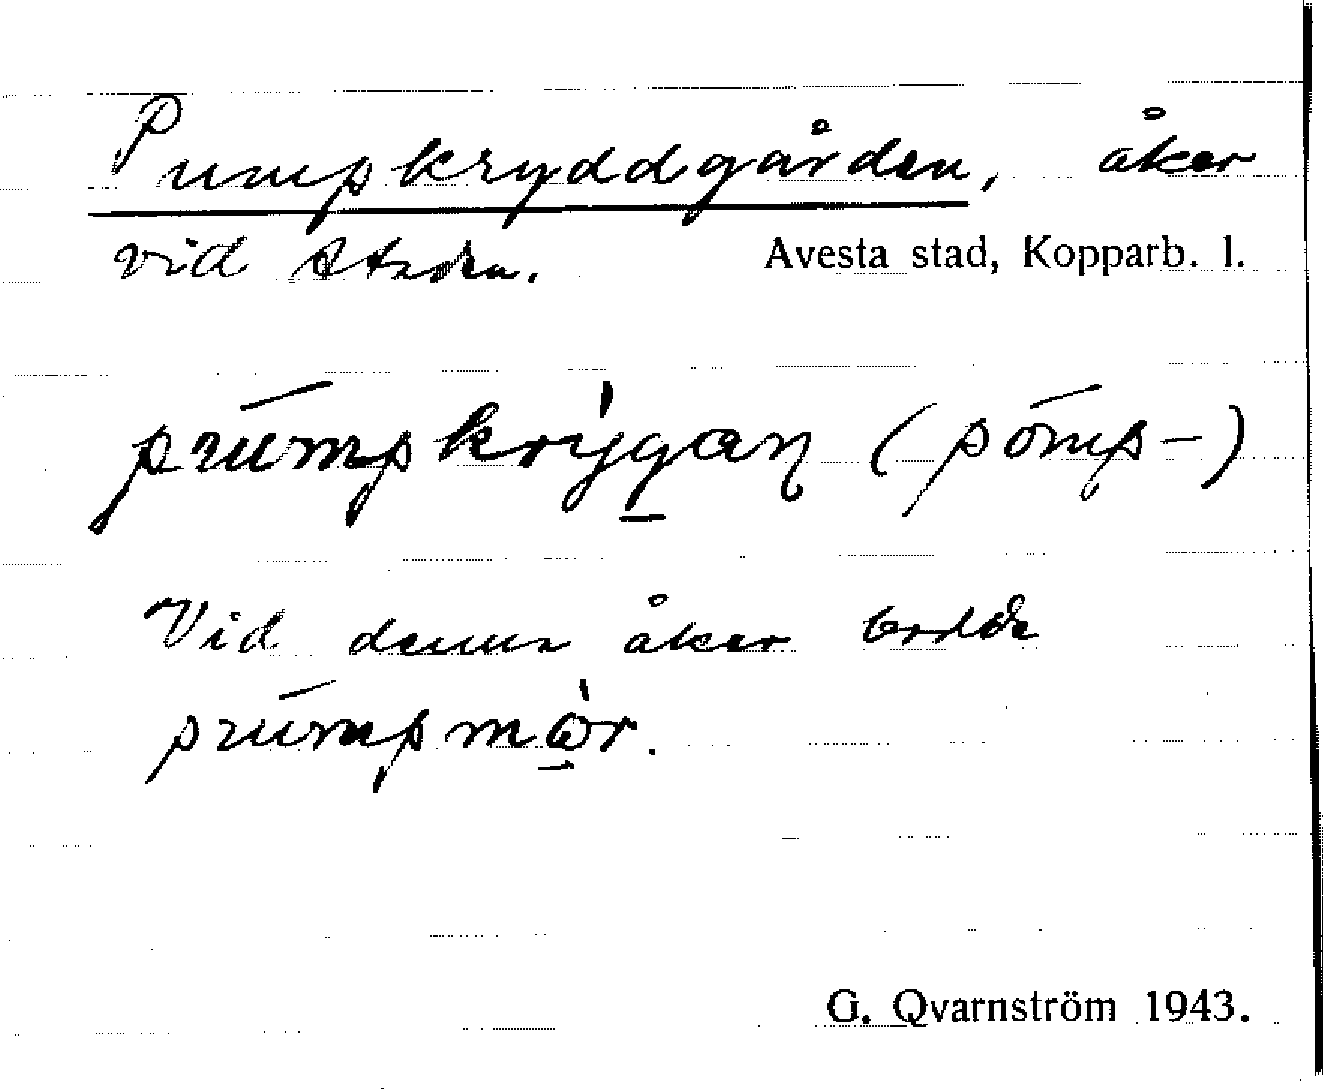 Pumpkryddgården, åker
vid Staden. Avesta stad, Kopparb. l.
pumpkrýgaɳ (pómp-)
Vid denna åker bodde
pumpmor.
G. Qvarnström 1943.